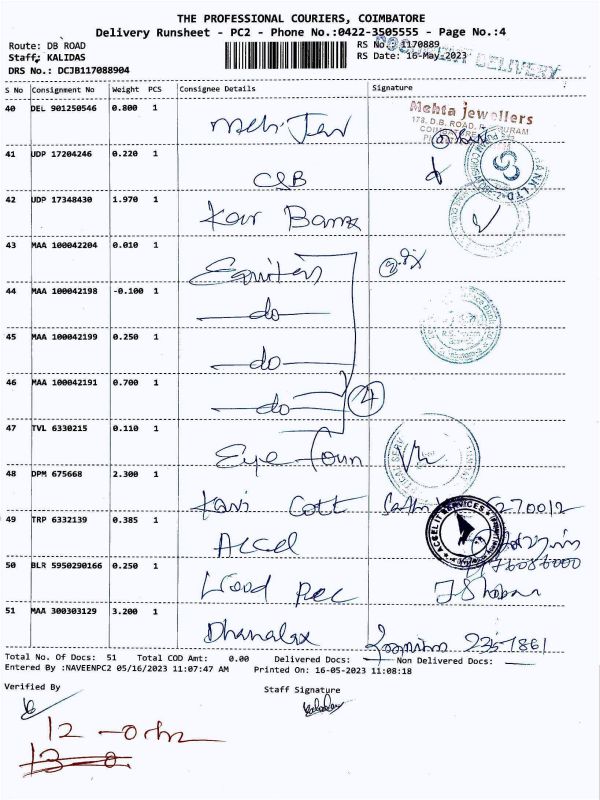 THE PROFESSIONAL COURIERS, COIMBATORE
Delivery Runsheet - PC2 - Phone No.:0422-3505555 - Page No.:4
Route: DB ROAD
RS No. 1170889
Staff: KALIDAS
RS Date: 16-May-2023
DOCUMENT DELIVERY
DRS No.: DCJB117088904
S No Consignment No Weight PCS Consignee Details Signature
40 DEL 901250546 0.800 1
Mehta jewellers
178, D.B. ROAD,
41 UDP 17204246 0.220 1
CSB
42 UDP 17348430 1.970 1
Kar
43 MAA 100042204 0.010 1
Equitas
44 MAA 100042198 -0.100 1
do
45 MAA 100042199 0.250 1
do
46 MAA 100042191 0.700 1
do 4
47 TVL 6330215 0.110 1
Eye Foun
48 DPM 675668 2.300 1
Kavi Cott
49 TRP 6332139 0.385 1
Accel
ACCEL IT SERVICES
50 BLR 5950290166 0.250 1
Wood Pec
51 MAA 300303129 3.200 1
Dhanalax 2351861
Total No. Of Docs: 51 Total COD Amt: 0.00 Delivered Docs: Non Delivered Docs:
Entered By :NAVEENPC2 05/16/2023 11:07:47 AM Printed On: 16-05-2023 11:08:18
Verified By
Staff Signature